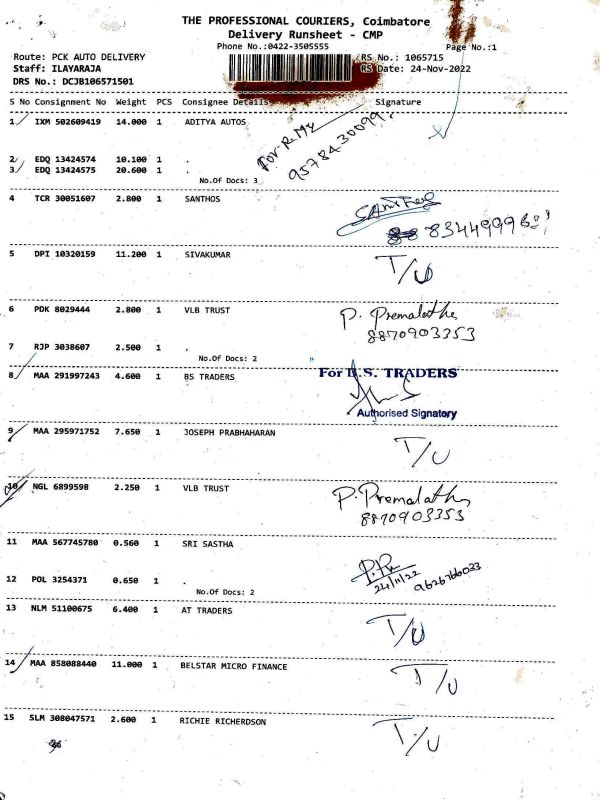 THE PROFESSIONAL COURIERS, Coimbatore
Delivery Runsheet - CMP
Phone No.:0422-3505555 Page No.:1
Route: PCK AUTO DELIVERY RS No.: 1065715
Staff: ILAYARAJA RS Date: 24-Nov-2022
DRS No.: DCJB106571501
S No Consignment No Weight PCS Consignee Details Signature
1 IXM 502609419 14.000 1 ADITYA AUTOS
2 EDQ 13424574 10.100 1 .
3 EDQ 13424575 20.600 1 .
No.Of Docs: 3
4 TCR 30051607 2.800 1 SANTHOS
5 DPI 10320159 11.200 1 SIVAKUMAR T/U
6 PDK 8029444 2.800 1 VLB TRUST P. Premalatha
8870903353
7 RJP 3038607 2.500 1 .
No.Of Docs: 2
8 MAA 291997243 4.600 1 BS TRADERS For B.S. TRADERS
Authorised Signatory
9 MAA 295971752 7.650 1 JOSEPH PRABHAHARAN T/U
10 NGL 6899598 2.250 1 VLB TRUST P. Premalatha
8870903353
11 MAA 567745780 0.560 1 SRI SASTHA
24/11/22 9626766033
12 POL 3254371 0.650 1 .
No.Of Docs: 2
13 NLM 51100675 6.400 1 AT TRADERS T/U
14 MAA 858088440 11.000 1 BELSTAR MICRO FINANCE T/U
15 SLM 308047571 2.600 1 RICHIE RICHERDSON T/U